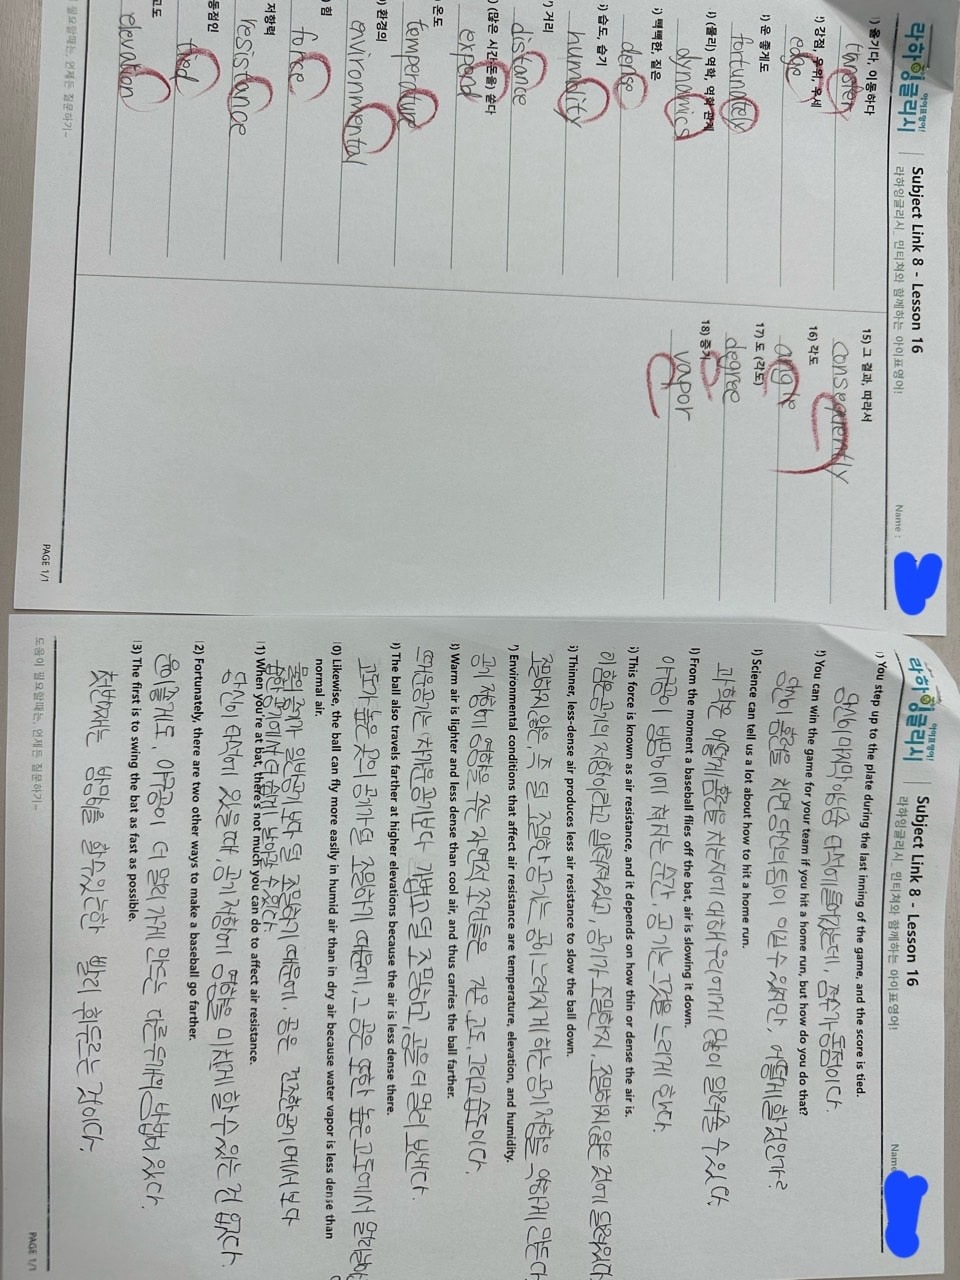 라하잉글리시
아이표영어!
Subject Link 8 - Lesson 16
라하잉글리시_민티쳐와 함께하는 아이표영어!
Name :
1) 옮기다, 이동하다
transfer
2) 강점, 우위, 우세
edge
3) 운 좋게도
fortunately
4) (물리) 역학, 역학 관계
dynamics
5) 빽빽한, 짙은
dense
6) 습도, 습기
humidity
7) 거리
distance
(많은 시간·돈을) 쏟다
expend
온도
temperature
환경의
environmental
힘
force
저항력
resistance
동점인
tied
고도
elevation
15) 그 결과, 따라서
consequently
16) 각도
angle
17) 도 (각도)
degree
18) 증기
vapor
필요할때는, 언제든 질문하기~
PAGE 1/1
라하잉글리시
아이표영어!
Subject Link 8 - Lesson 16
라하잉글리시_민티쳐와 함께하는 아이표영어!
Name
1) You step up to the plate during the last inning of the game, and the score is tied.
당신이 마지막 이닝 중 타석에 들어섰는데, 점수가 동점이다.
2) You can win the game for your team if you hit a home run, but how do you do that?
당신이 홈런을 치면 당신의 팀이 이길 수 있지만, 어떻게 할것인가?
3) Science can tell us a lot about how to hit a home run.
과학은 어떻게 홈런을 치는지에 대해 우리에게 많이 알려줄 수 있다.
4) From the moment a baseball flies off the bat, air is slowing it down.
야구공이 방망이에 쳐지는 순간, 공기는 그것을 느리게 한다.
5) This force is known as air resistance, and it depends on how thin or dense the air is.
이 힘은 공기의 저항이라고 알려져있고, 공기가 조밀한지, 조밀하지 않은 것에 달려있다.
6) Thinner, less-dense air produces less air resistance to slow the ball down.
조밀하지 않은, 즉 덜 조밀한 공기는 공이 느려지게 하는 공기저항을 약하게 만든다.
7) Environmental conditions that affect air resistance are temperature, elevation, and humidity.
공기 저항에 영향을 주는 자연적 조건들은 기온, 고도 그리고 습도이다.
8) Warm air is lighter and less dense than cool air, and thus carries the ball farther.
따뜻한 공기는 차가운 공기보다 가볍고 덜 조밀하고, 공을 더 멀리 보낸다.
9) The ball also travels farther at higher elevations because the air is less dense there.
고도가 높은 곳의 공기가 덜 조밀하기 때문에, 그 공은 또한 높은 고도에서 멀리날아
10) Likewise, the ball can fly more easily in humid air than in dry air because water vapor is less dense than
normal air.
물의 증기가 일반공기 보다 덜 조밀하기 때문에, 공은 건조한 공기에서 보다
습한 공기에서 더 쉽게 날아갈 수 있다.
11) When you're at bat, there's not much you can do to affect air resistance.
당신이 타석에 있을 때, 공기 저항에 영향을 미치게 할 수 있는 건 없다.
12) Fortunately, there are two other ways to make a baseball go farther.
운이 좋게도, 야구공이 더 멀리 가게 만드는 다른 두개의 방법이 있다.
13) The first is to swing the bat as fast as possible.
첫번째는 방망이를 할수있는한 빨리 휘두르는 것이다.
도움이 필요할때는, 언제든 질문하기~
PAGE 1/1